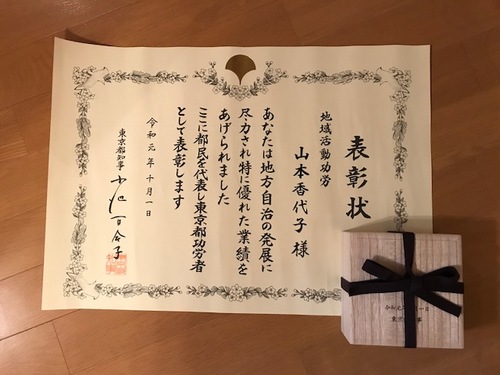 表彰状
地域活動功労
山本香代子 様
あなたは地方自治の発展に
尽力され特に優れた業績を
あげられました
ここに都民を代表し東京都功労者
として表彰します
令和元年十月一日
東京都知事 小池百合子
令和元年 一日
東京 事